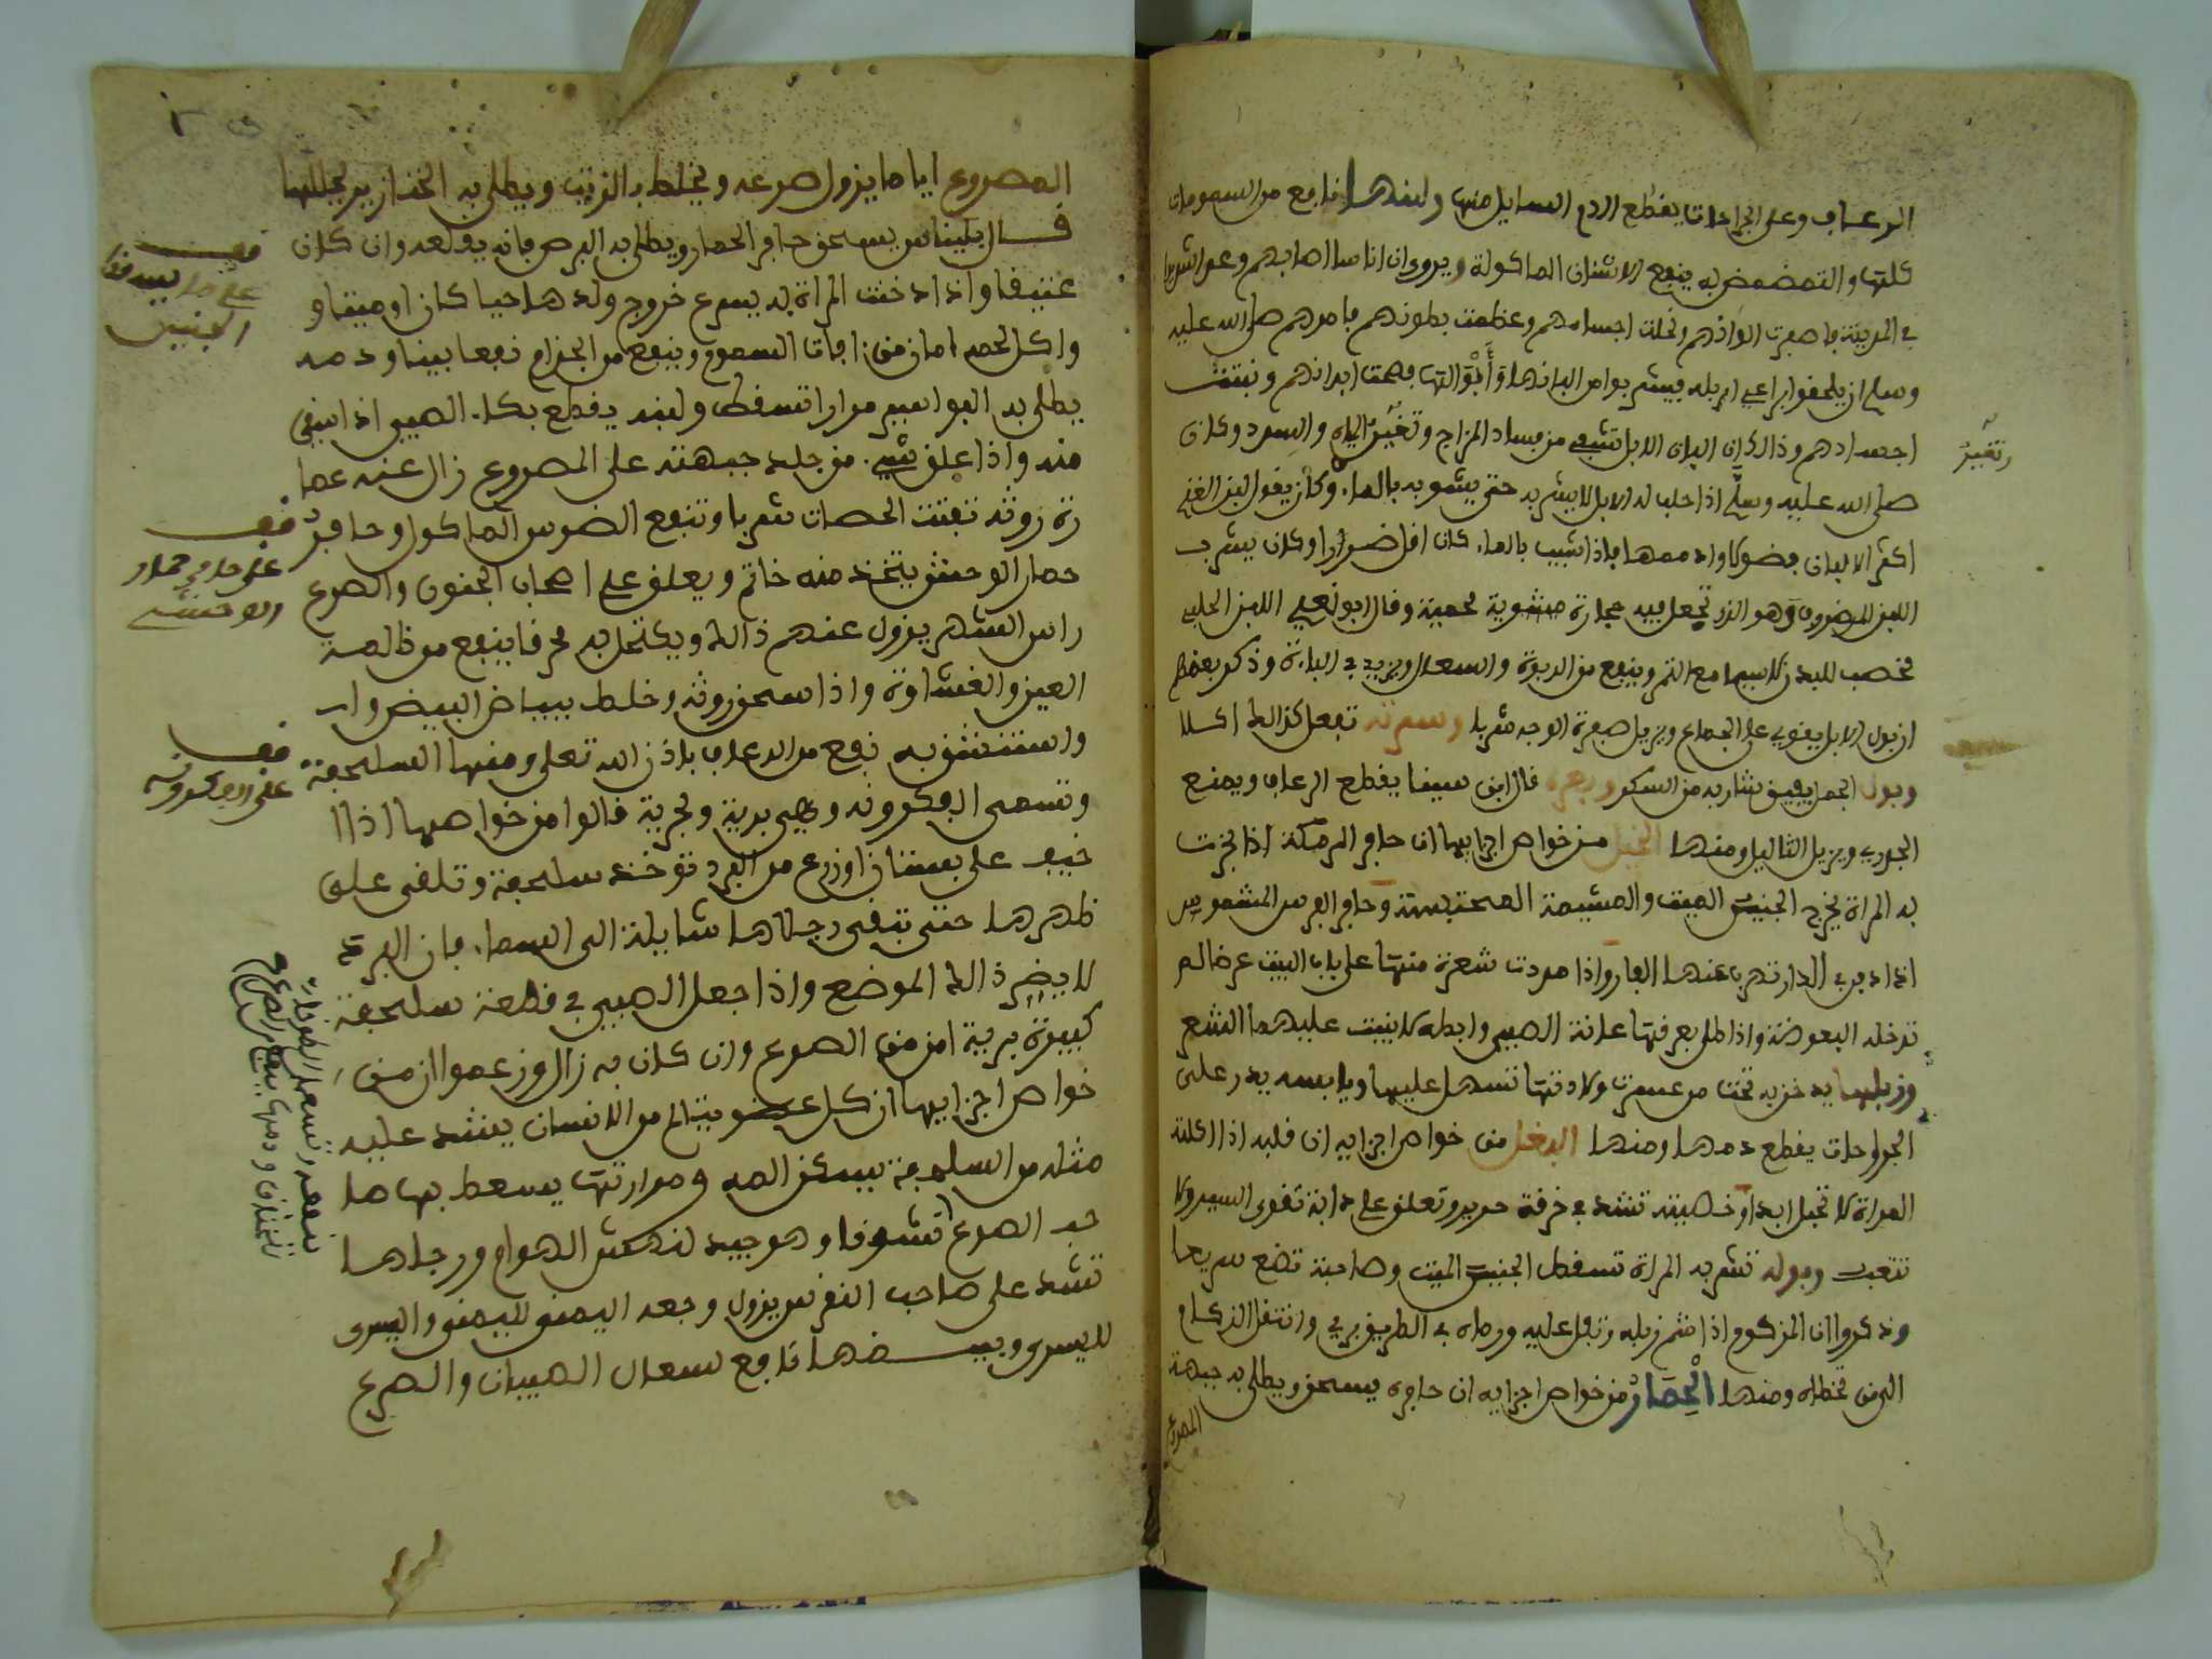 الرعاف وعلى الجراحات يقطع الدم السايل منها ولبنها نافع من السمومات
كلها والتمضمض به ينفع الاسنان الماكولة ويروى ان اناسا اصابهم وعر
في المدينة فاصفرت الوانهم ونحلت اجسامهم وعظمت بطونهم فامرهم صلى الله عليه
وسلم ان يلحقوا براعي ابله فيشربوا من البانها وَأَبْوَالها فصحت ابدانهم ونبتت
اجسادهم وذالك ان البان الابل تشفي من فساد المزاج وتغيّر المياه والسدد وكان
صلى الله عليه وسلّم اذا حلب له الابل لا يشربه حتى يشوبه بالماء وكان يقول لبن
اكثر الالبان فضولا وادسمها فاذا شيب بالماء كان اقل ضررا وكان يشرب
اللبن المرضوف وهو الذي تجعل فيه حجارة مشوية محمية وقال ابو نعيم اللبن الحليب
مخصب للبدن لا سيما مع التمر وينفع من الربوة والسعال ويزيد في الباءة وذكر بعضهم
ان بول الابل يقوي على الجماع ويزيل صفرة الوجه شربا وسرته تفعل كذالك اكلا
وبول الجمل يفيق شاربه من السكر وبعره قال ابن سينا يقطع الرعاف ويمنع
الجدري ويزيل الثاليل ومنها الخيل من خواص اجزايها ان حافر الرمكة اذا بخرت
به المراة يخرج الجنين الميت والمشيمة المحتبسة وحافر الفرس
اذا دفن في الدار تهرب عنها الفار واذا مدت شعرة منها على باب البيت عرضا لم
تدخله البعوضة واذا طلي بعرقها عانة الصبي وابطه لا ينبت عليهما الشعر
وزبلها يدخن به تحت من عسرت ولادتها تسهل عليها ويابسه يذر على
الجراحات يقطع دمها ومنها البغل من خواص اجزايه ان قلبه اذا اكلته
المراة لا تحبل ابدا وخصيته تشد في خرقة حرير وتعلق على دابة تقوى السير ولا
تتعب وبوله تشربه المراة تسقط الجنين الميت وصاحبة تضع سريعا
وذكروا ان المزكوم اذا شم زبله وتفل عليه ورماه في الطريق بري وانتقل الزكام
الى من تخطاه ومنها الْحِمَارْ من خواص اجزايه ان حافره يسحق ويطلى به جبهة
المصروع
وتغيّر
المصروع اياما يزول صرعه ويخلط بالزيت ويطلى به الخنازير يحللها
قال بليناس يسحق حافر الحمار ويطلى به البرص فانه يقلعه وان كان
عتيقا واذا دخنت المراة به يسرع خروج ولدها حيا كان او ميتا و
واكل لحمه امان من افات السموم وينفع من الجذام نفعا بينا ودمه
يطلى به البواسير مرارا تسقط ولبنه يقطع بكاء الصبي اذا سقي
منه واذا علق شيء من جلد جبهته على المصروع زال عنه عصا
رة روثه تفتت الحصاة شربا وتنفع الضرس الماكول وحافر
حمار الوحش يتخذ منه خاتم ويعلق على اصحاب الجنون والصرع
راس الشهر يزول عنهم ذالك ويكتحل به محرقا ينفع من ظلمة
العين والغشاوة واذا سحق روثه وخلط ببياض البيض و
واستنشق به نفع من الرعاف باذن الله تعلى ومنها السلحفة
وتسمى الفكرونه وهي برية وبحرية قالوا من خواصها اذا
خيف على بستان او زرع من البرد توخذ سلحفة وتلقى على
ظهرها حتى تبقى رجلاها شايلة الى السماء فان البرد
لا يضر ذالك الموضع واذا جعل الصبي في قطعة سلحفة
كبيرة برية امن من الصرع وان كان به زال وزعموا ان من
خواص اجزايها ان كل عضو يتالم من الانسان ينشد عليه
مثله من السلحفة يسكن المه ومرارتها يسعط بها صا
حب الصرع نشوقا وهو جيد لنهش الهوام ورجلاها
تشد على صاحب النقرس يزول وجعه اليمنى لليمنى واليسرى
لليسرى وبيضها نافع لسعال الصبيان والصرع
قف
على ما يسقط
الجنين
قف
على حافر حمار
الوحش
قف
على الفكرونه